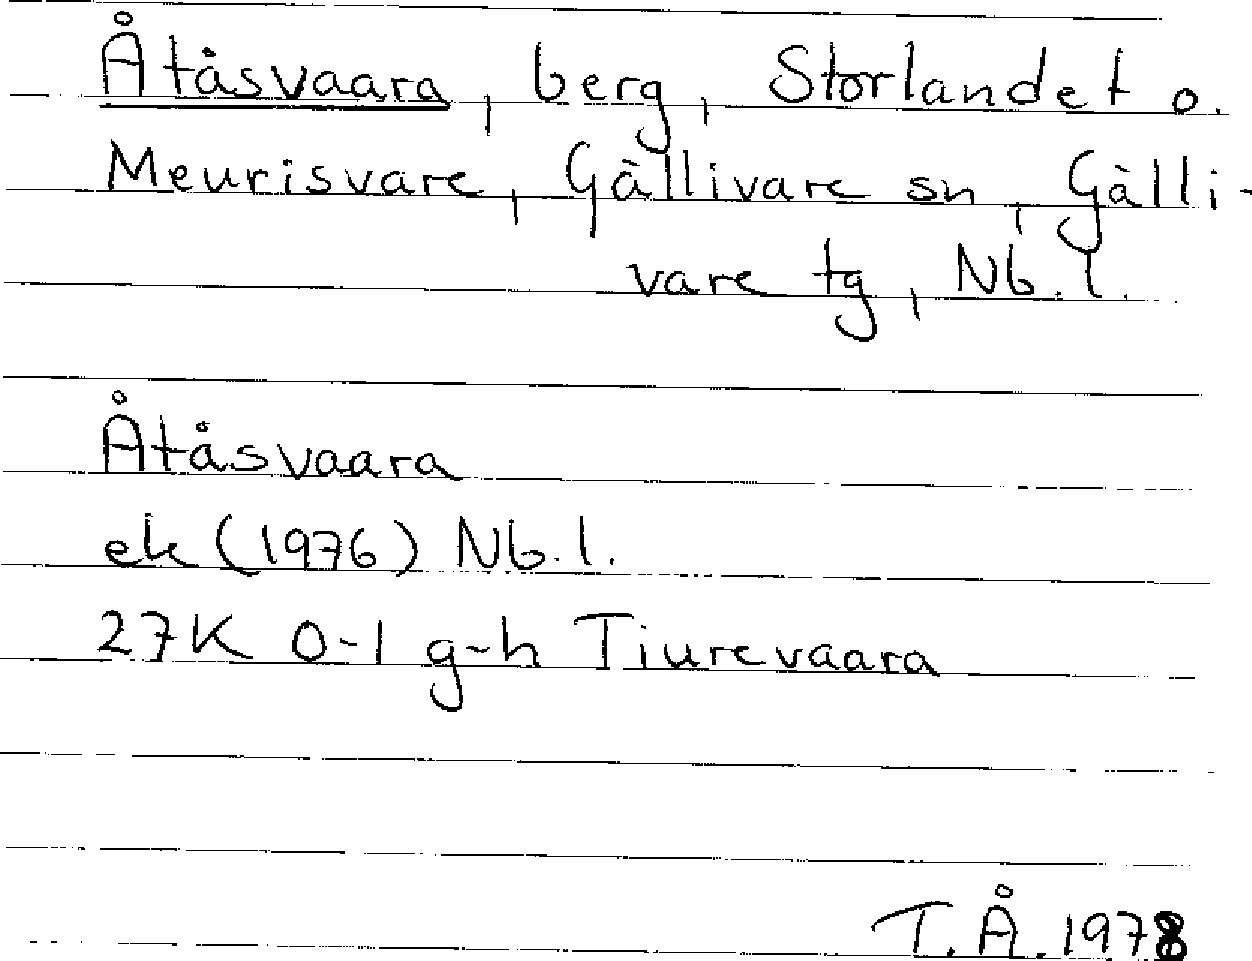 Åtåsvaara, berg, Storlandet o.
Meurisvare, Gällivare sn, Gälli-
vare tg, Nb.l.
Åtåsvaara
ek (1976) Nb.l.
27K 0-1 g-h Tiurevaara
T.Å. 1978